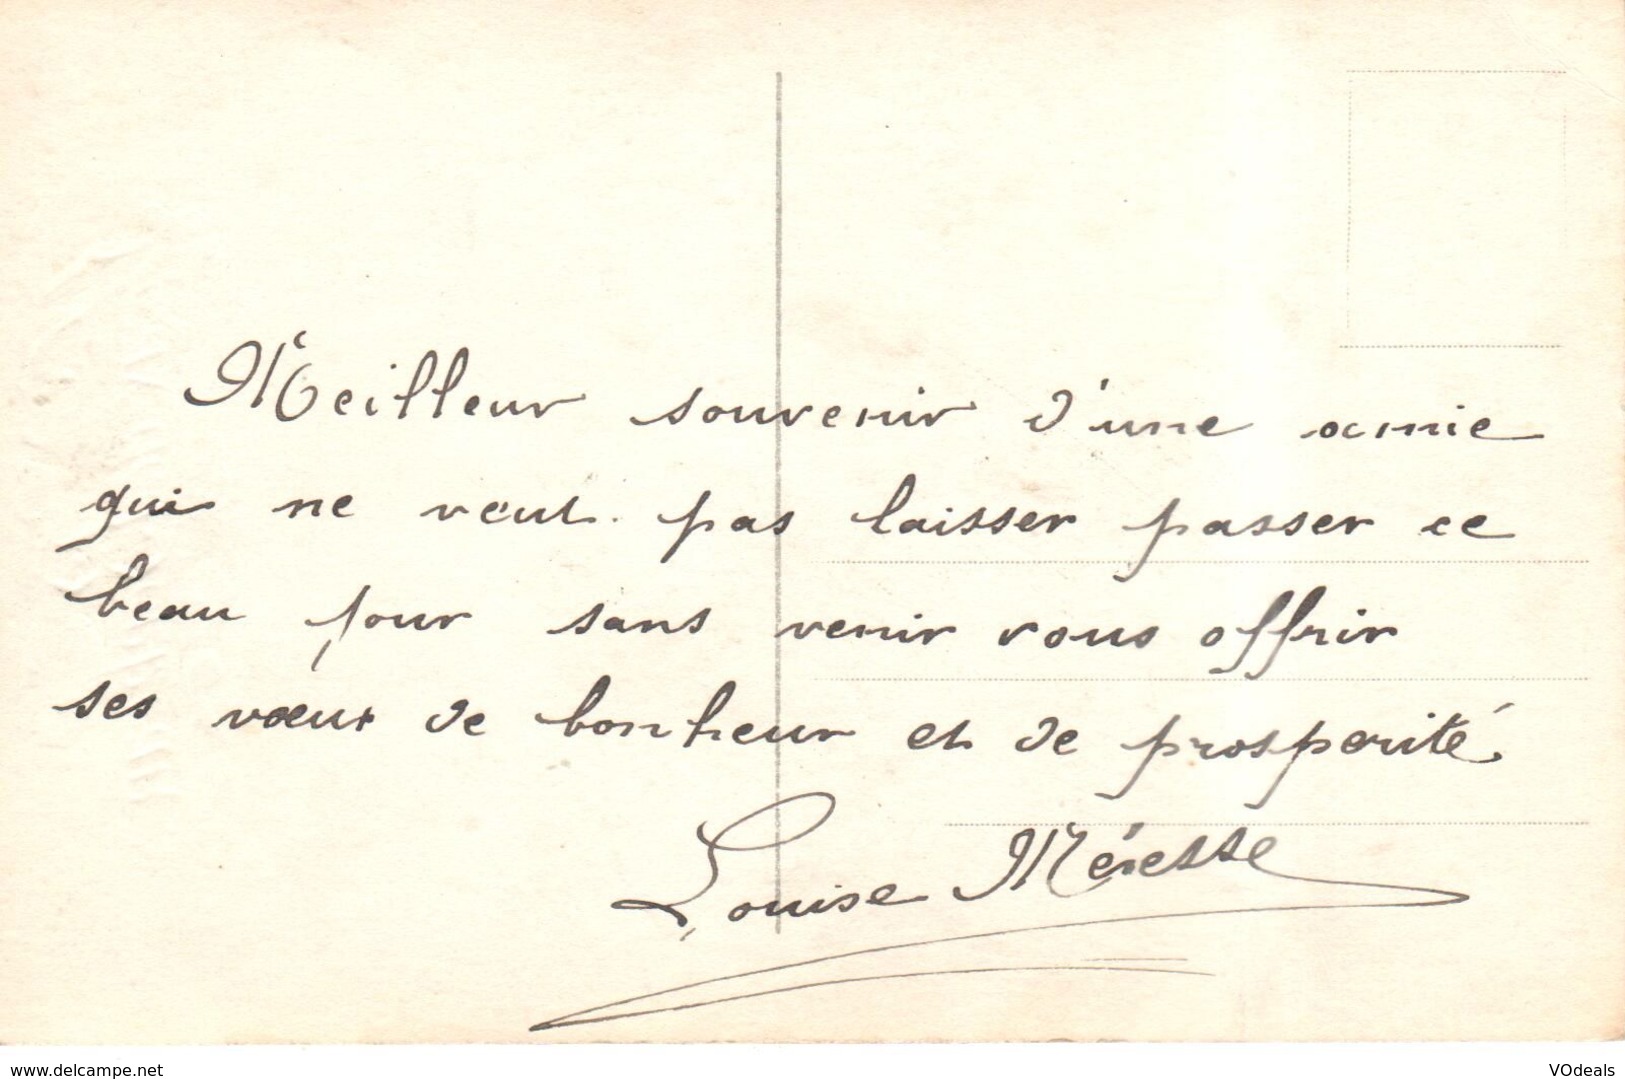 Meilleur souvenir d'une amie
qui ne veut pas laisser passer ce
beau jour sans venir vous offrir
ses vœux de bonheur et de prosperité
Louise Méresse
www.delcampe.net
VOdeals